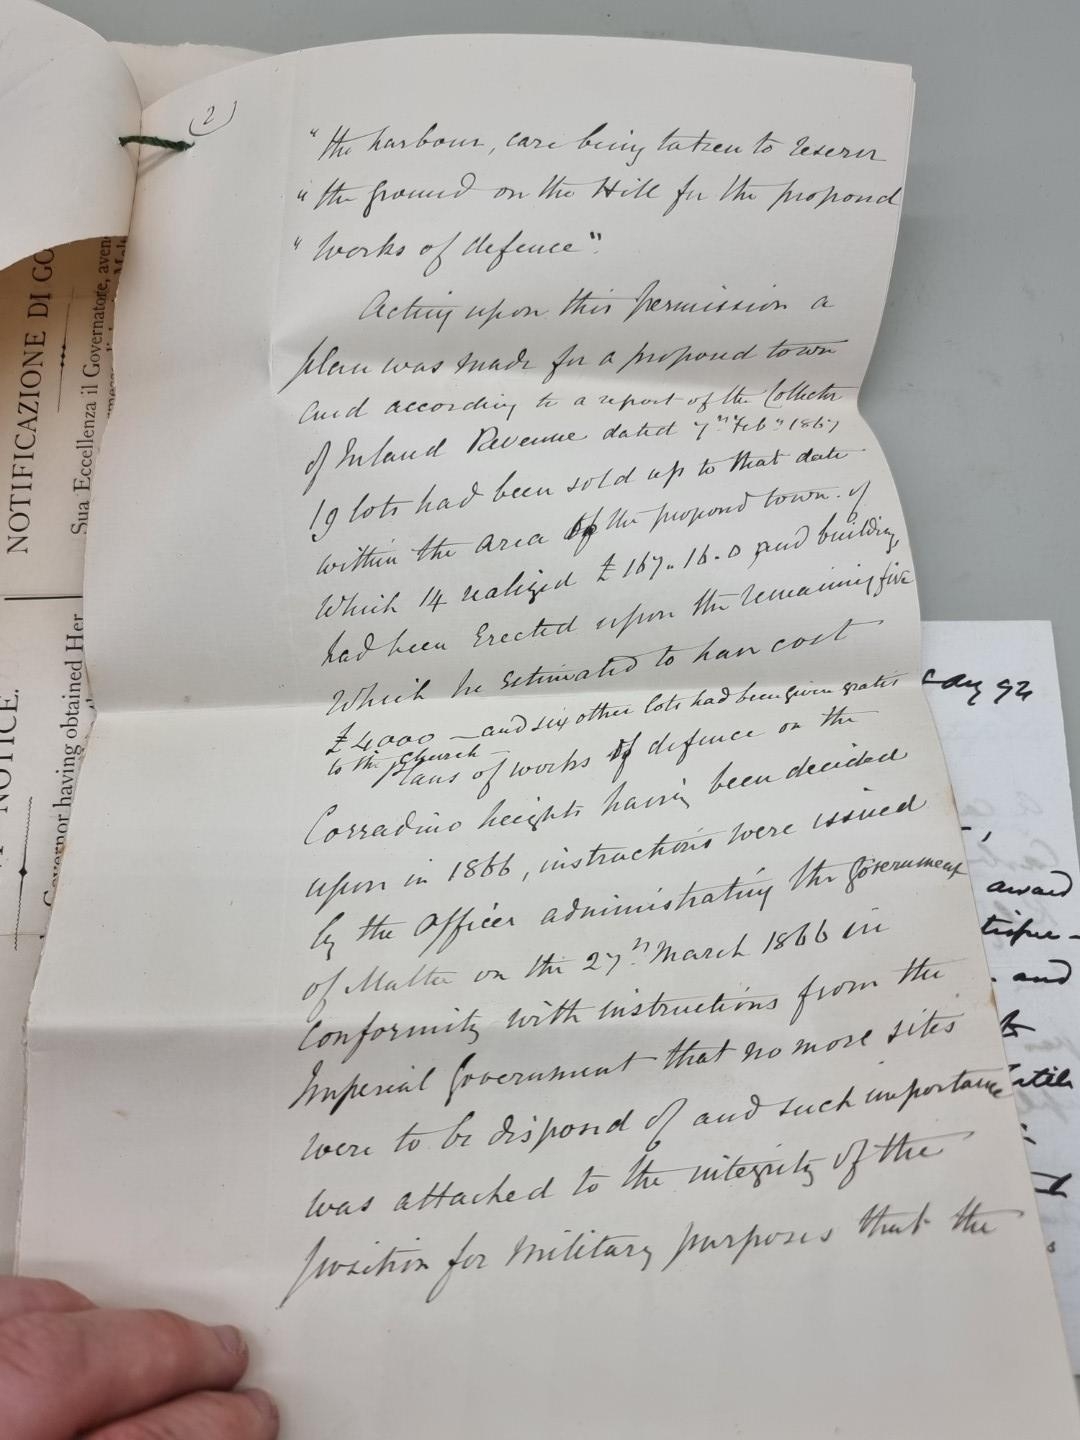 (2)
"the harbour, care being taken to reserve
"the ground on the Hill for the proposed
"works of defence".
Acting upon this permission a
plan was made for a proposed town
and according to a report of the Collector
of Inland Revenue dated 7th Feby 1867
19 lots had been sold up to that date
within the area of the proposed town. of
which 14 realized £167.16.0 and buildings
had been Erected upon the remaining five
which he Estimated to have cost
£4000 — and six other lots had been given gratis
to the Church —
Plans of works of defence on the
Corradino heights having been decided
upon in 1866, instructions were issued
by the Officer administrating the Government
of Malta on the 27th March 1866 in
Conformity with instructions from the
Imperial Government that no more sites
were to be disposed of and such importance
was attached to the integrity of the
position for Military purposes that the
NOTIFICAZIONE DI GO
Sua Eccellenza il Governatore, aven
NOTICE.
Governor having obtained Her
92
award
and